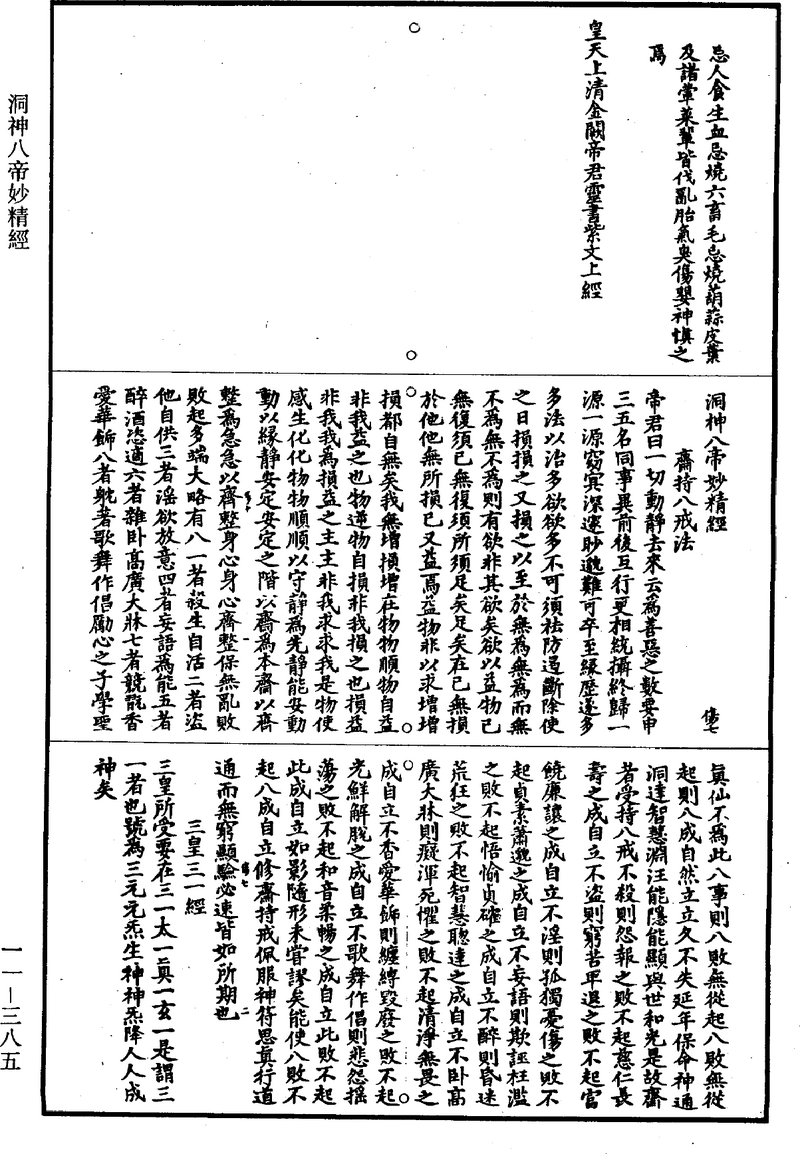 洞神八帝妙精經
一一—三八五
忌人食生血忌燒六畜毛忌燒葫蒜皮葉
及諸葷菜輩皆伐亂胎氣臭傷嬰神慎之
焉
皇天上清金闕帝君靈書紫文上經
洞神八帝妙精經 傷七
齋持八戒法
帝君曰一切動靜去來云為善惡之數要申
三五名同事異前後互行更相統攝終歸一
源一源窈冥深邃眇邈難可卒至緣歷遂多
多法以治多欲欲多不可須祛防遏斷除使
之日損損之又損之以至於無為無為而無
不為無不為則有欲非其欲矣欲以益物已
無復須已無復須所須足矣足矣在已無損
於他他無所損已又益焉益物非以求增增
損都自無矣我無增損增在物物順物自益
非我益之也物逆物自損非我損之也損益
非我我為損益之主主非我求求我是物使
感生化化物物順順以守靜為先靜能安動
動以緣靜安定安定之階以齋為本齋以齊
整為急急以齊整身心身心齊整保無亂敗
敗起多端大略有八一者殺生自活二者盜
他自供三者淫欲放意四者妄語為能五者
醉酒恣適六者雜卧高廣大牀七者競翫香
愛華飾八者躭著歌舞作倡勵心之子學聖
真仙不為此八事則八敗無從起八敗無從
起則八成自然立立久不失延年保命神通
洞達智慧淵汪能隱能顯與世和光是故齋
者受持八戒不殺則怨報之敗不起慈仁長
壽之成自立不盜則窮苦卑退之敗不起富
饒廉讓之成自立不淫則孤獨憂傷之敗不
起貞素蕭邈之成自立不妄語則欺誣枉濫
之敗不起悟愉貞確之成自立不醉則昏迷
荒狂之敗不起智慧聰達之成自立不卧高
廣大牀則癡渾死懼之敗不起清淨無畏之
成自立不香愛華飾則纏縛毀廢之敗不起
光鮮解脫之成自立不歌舞作倡則悲怨搖
蕩之敗不起和音柔暢之成自立此敗不起
此成自立如影隨形未嘗謬矣能使八敗不
起八成自立修齋持戒佩服神符思真行道
通而無窮顯驗必速皆如所期也
三皇三一經
三皇所受要在三一太一真一玄一是謂三
一者也號為三元元炁生神神炁降人人成
神矣